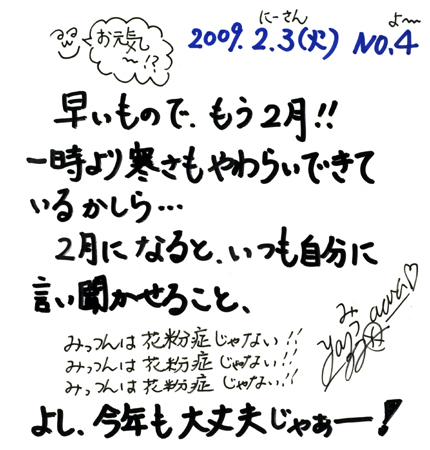 お元気し
〜!?
にーさん
よ〜
2009.2.3(火) NO.4
早いもので、もう2月!!
一時より寒さもやわらいできて
いるかしら…
2月になると、いつも自分に
言い聞かせること、
みっつんは花粉症じゃない!!
みっつんは花粉症じゃない!!
みっつんは花粉症じゃない!!
よし、今年も大丈夫じゃぁー!